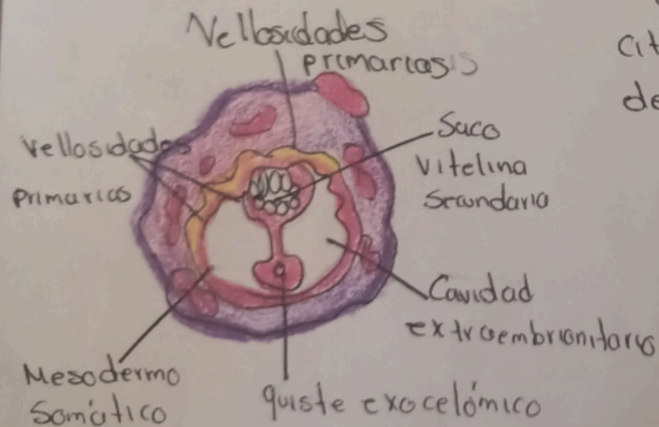 Vellosidades
primarias
cit
de
Vellosidades
primarias
Saco
vitelina
secundario
Cavidad
extraembrionitario
Mesodermo
Somático
quiste exocelómico